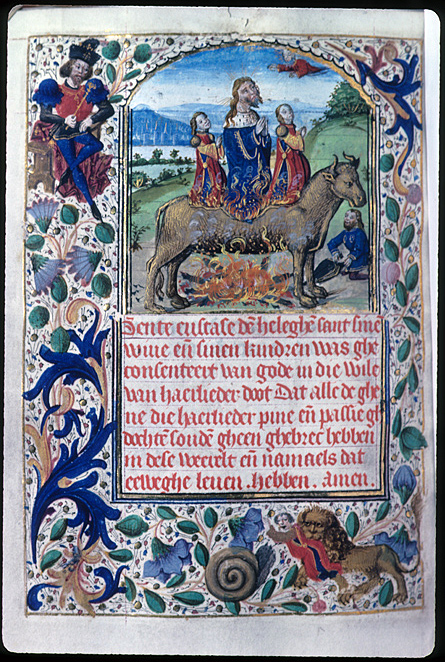 Sente eustase dē heleghē sant sine
wiue eñ sinen kindren was ghe
consenteirt van gode in die wile
van haerlieder doot Dat alle de ghe
ne die haerlieder pine eñ passie gh
dochtē soudē gheen ghebrec hebben
in dese weerelt eñ namaels dat
eeweghe leuen . hebben . amen .